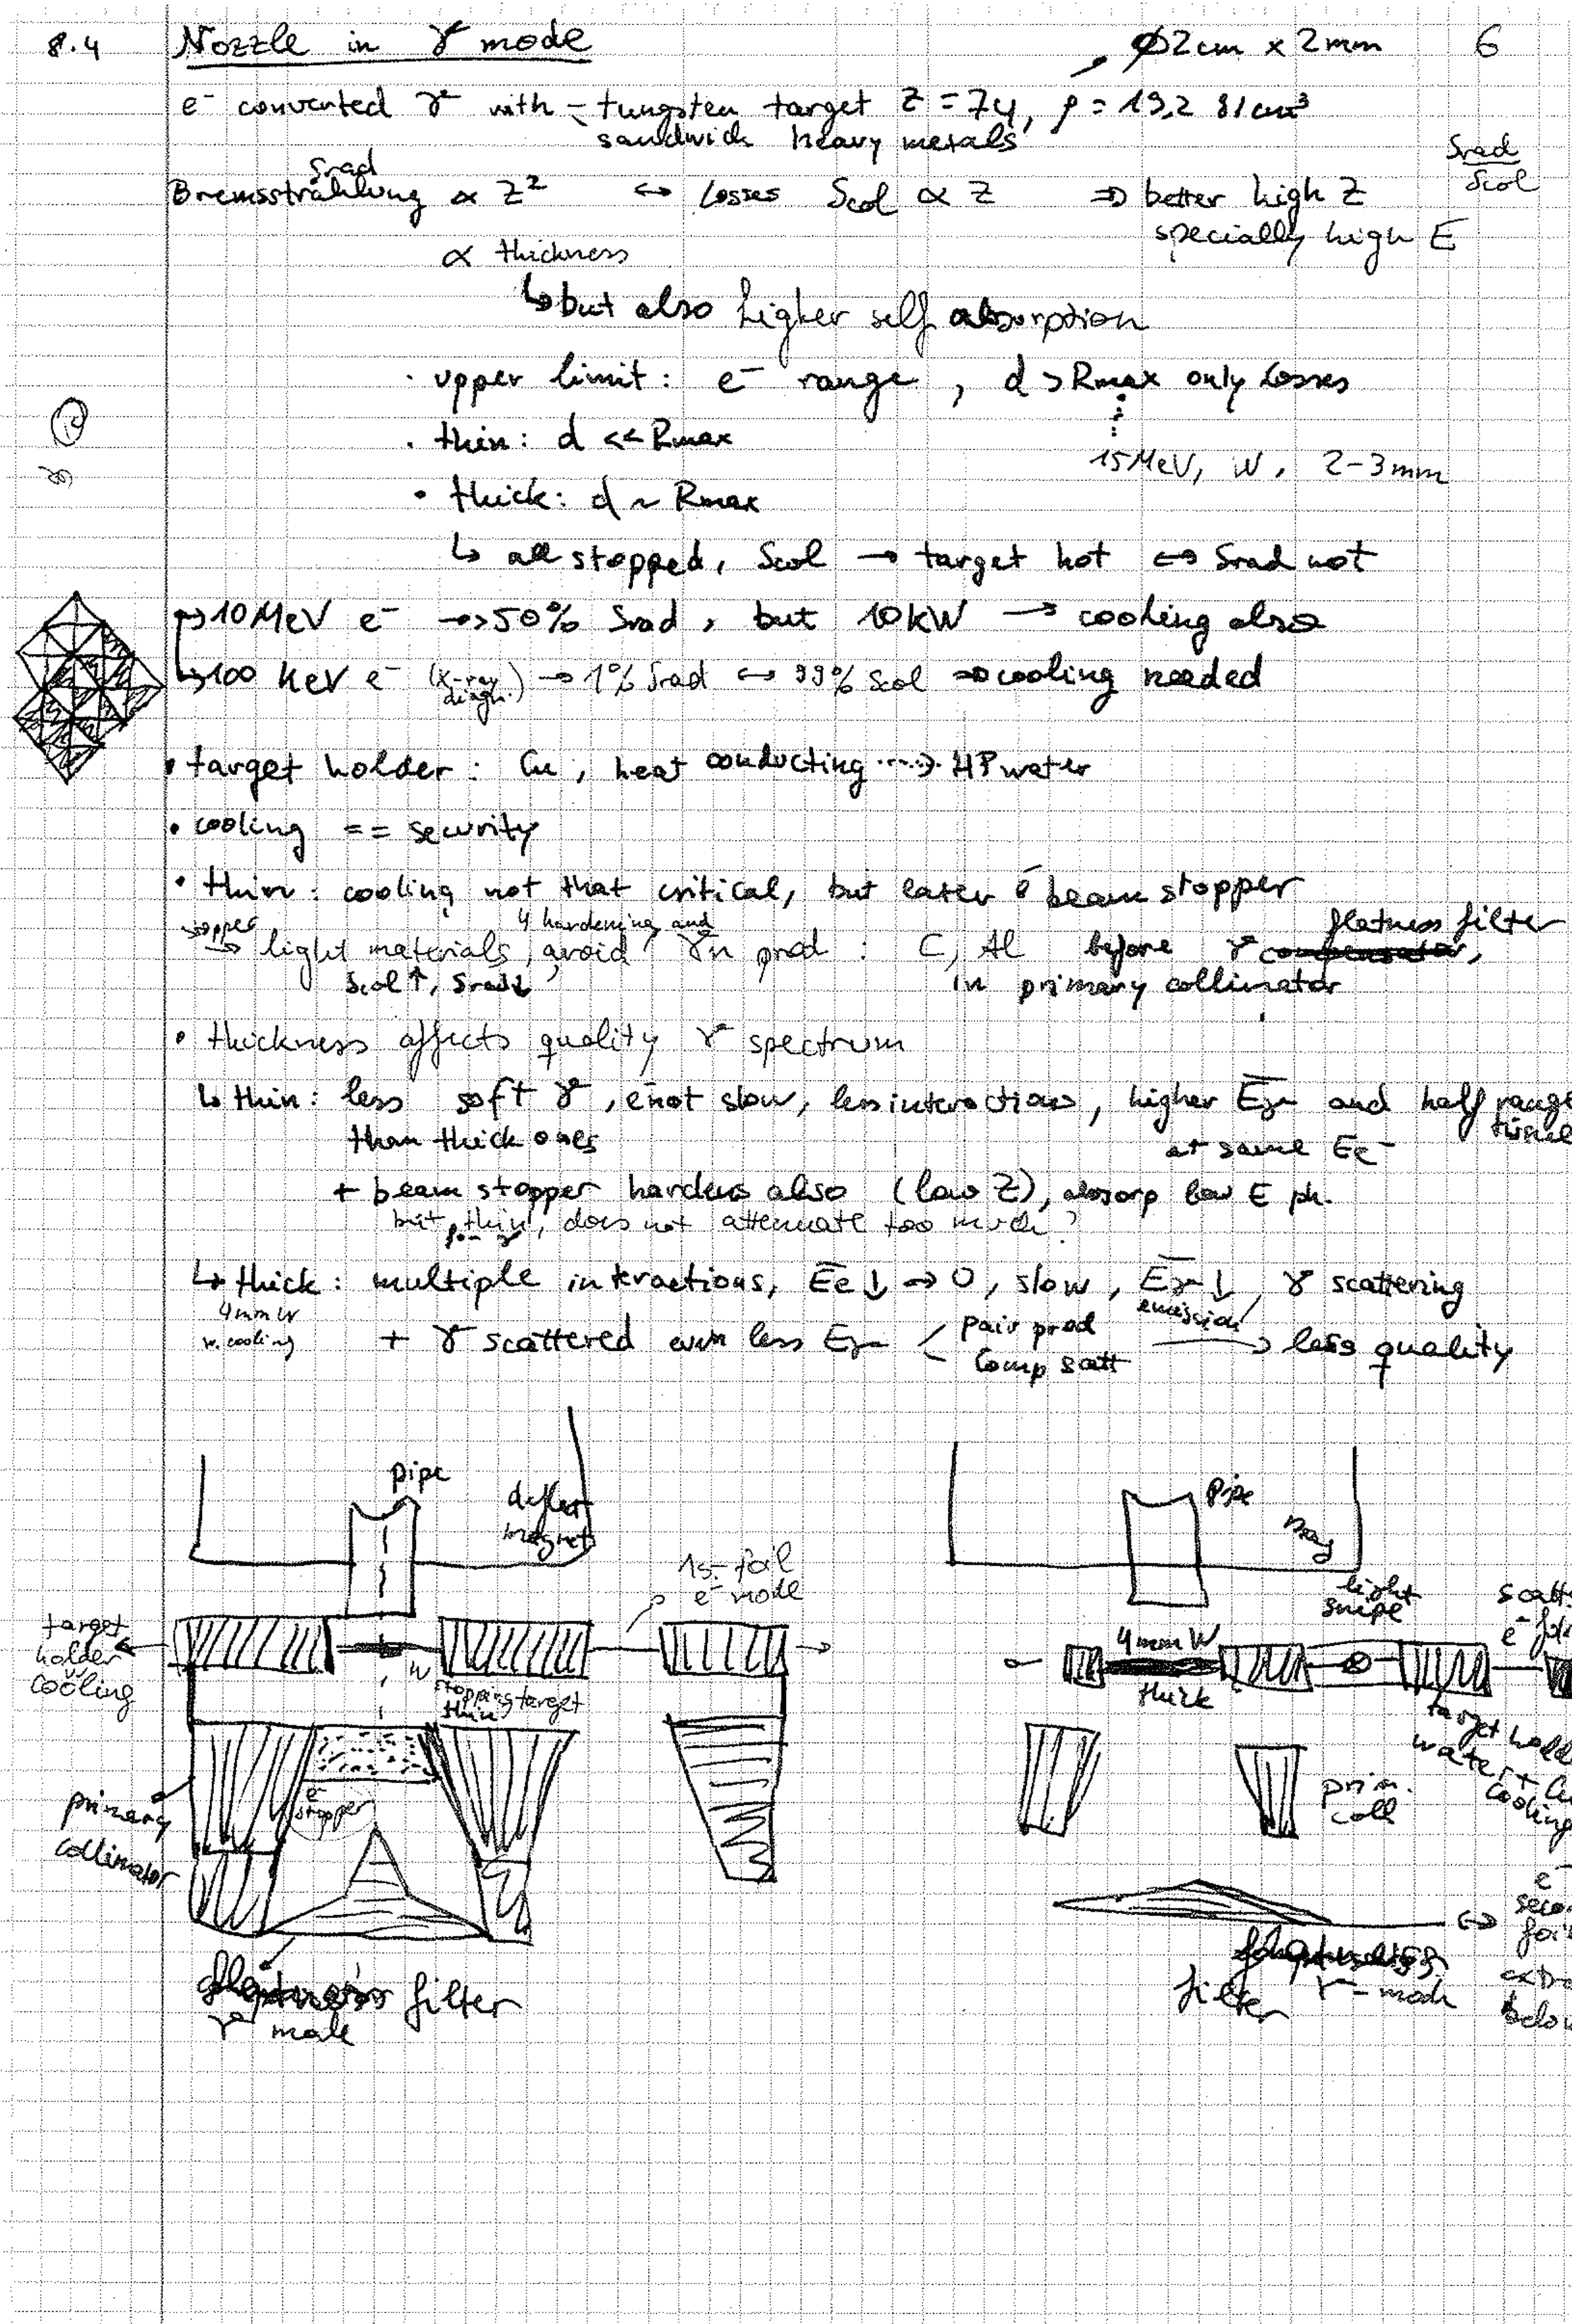 8.4 Nozzle in γ mode ∅2cm x 2mm 6
e⁻ converted γ with - tungsten target Z = 74, ρ = 19,2 g/cm³
sandwich heavy metals
Srad
Bremsstrahlung ∝ Z² ↔ Losses Scol ∝ Z ⇒ better high Z
Srad
Scol
specially high E
∝ thickness
↳ but also higher self absorption
· upper limit: e⁻ range, d > Rmax only losses
· thin: d << Rmax
15 MeV, W, 2-3mm
• thick: d ~ Rmax
↳ all stopped, Scol → target hot ↔ Srad not
↳ 10 MeV e⁻ → 50% Srad, but 10kW → cooling also
↳ 100 keV e⁻ (X-ray diagn.) → 1% Srad ↔ 99% Scol ⇒ cooling needed
• target holder: Cu, heat conducting ····> HP water
• cooling == security
• thin: cooling not that critical, but later e⁻ beam stopper
stopper
4 hardening and
flatness filter
→ light materials, avoid γn prod: C, Al before γ
Scol↑, Srad↓
in primary collimator
• thickness affects quality γ spectrum
↳ thin: less soft γ, e⁻ not slow, less interactions, higher Eγ and half range
than thick ones
at same Ee⁻
+ beam stopper hardens also (low Z), absorp low E ph.
but thin, does not attenuate too much?
↳ thick: multiple interactions, Ee↓ → 0, slow, Eγ↓, γ scattering
4mm W
w. cooling
+ γ scattered even less Eγ
pair prod
Comp scatt
emission
→ less quality
pipe
deflect
magnet
1st foil
e⁻ mode
target
holder
cooling
W
stopping target
thin
e⁻
stopper
primary
collimator
filter
γ mode
pipe
mag
light
4mm W
thick
prim.
coll
filter γ-mode